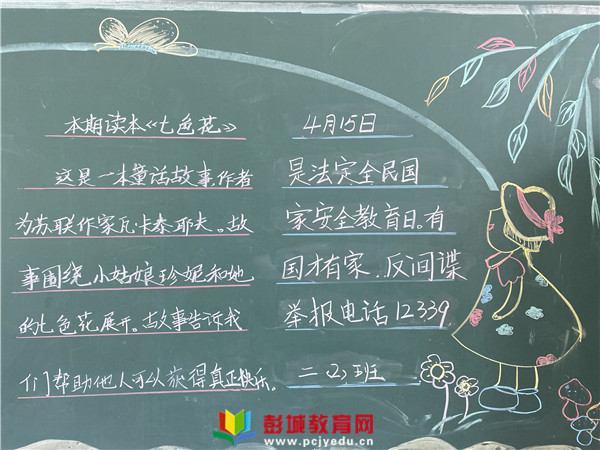 本期读本《七色花》
这是一本童话故事,作者
为苏联作家瓦·卡泰耶夫。故
事围绕小姑娘珍妮和她
的七色花展开。故事告诉我
们帮助他人可以获得真正快乐。
4月15日
是法定全民国
家安全教育日。有
国才有家.反间谍
举报电话12339
二(2)班
彭城教育网
www.pcjyedu.cn